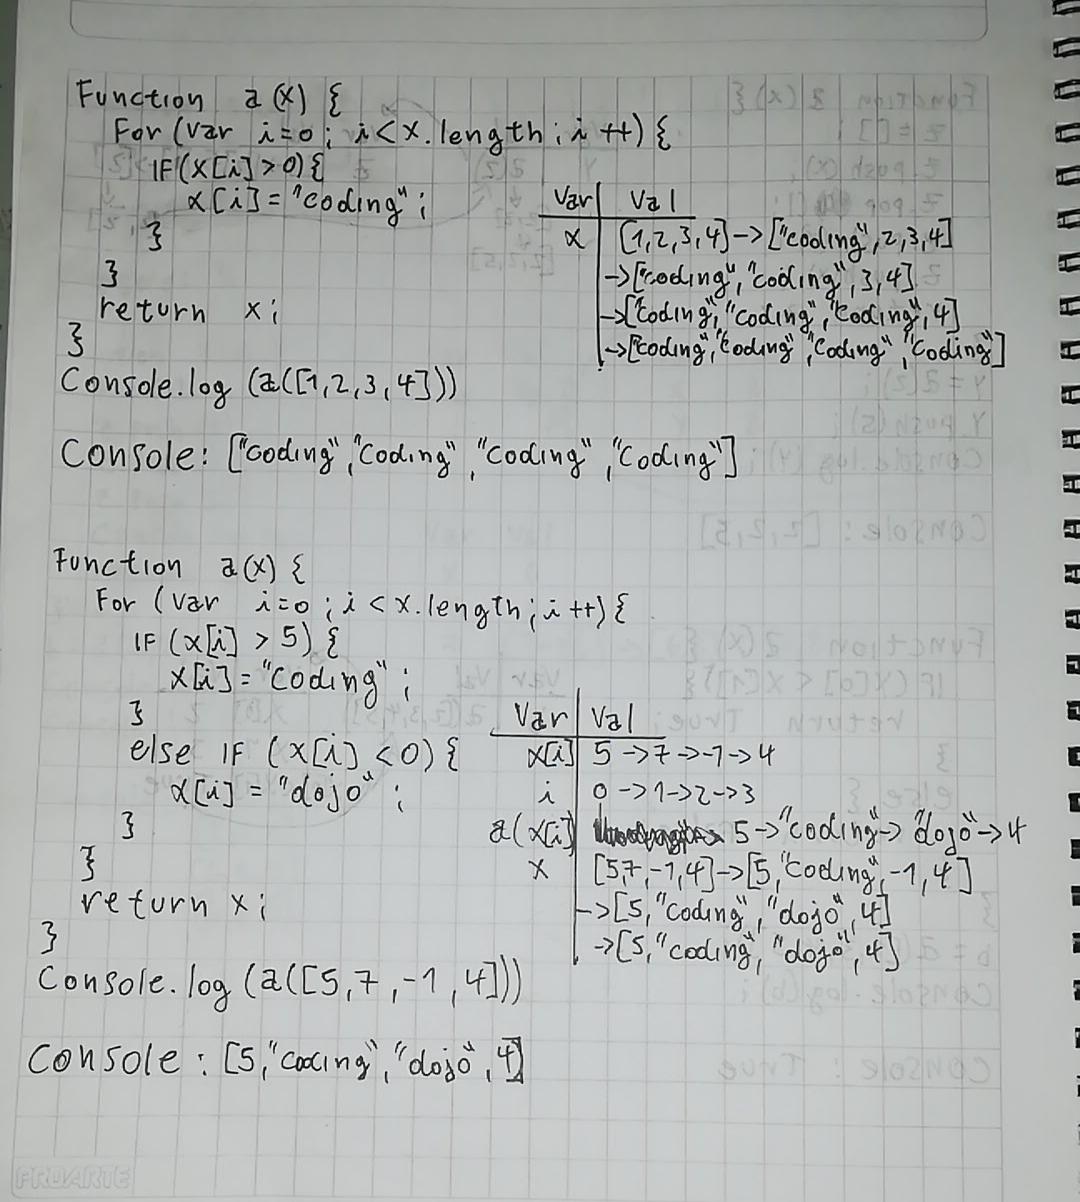 Function a(x) {
For (var i=0; i<x.length; i++) {
IF(x[i]>0){
x[i]="coding";
}
}
return x;
}
Console.log (a([1,2,3,4]))
Var Val
x [1,2,3,4]->["coding",2,3,4]
->["coding","coding",3,4]
->["coding","coding","coding",4]
->["coding","coding","coding","coding"]
Console: ["coding","coding","coding","coding"]
Function a(x) {
For (var i=0; i<x.length; i++) {
IF (x[i] > 5) {
x[i]="coding";
}
else IF (x[i] <0) {
x[i] = "dojo";
}
}
return x;
}
Console.log (a([5,7,-1,4]))
Var Val
x[i] 5->7->-1->4
i 0->1->2->3
a(x[i]) 5->"coding"->"dojo"->4
x [5,7,-1,4]->[5,"coding",-1,4]
->[5,"coding","dojo",4]
->[5,"coding","dojo",4]
Console: [5,"coding","dojo",4]
PROARTE